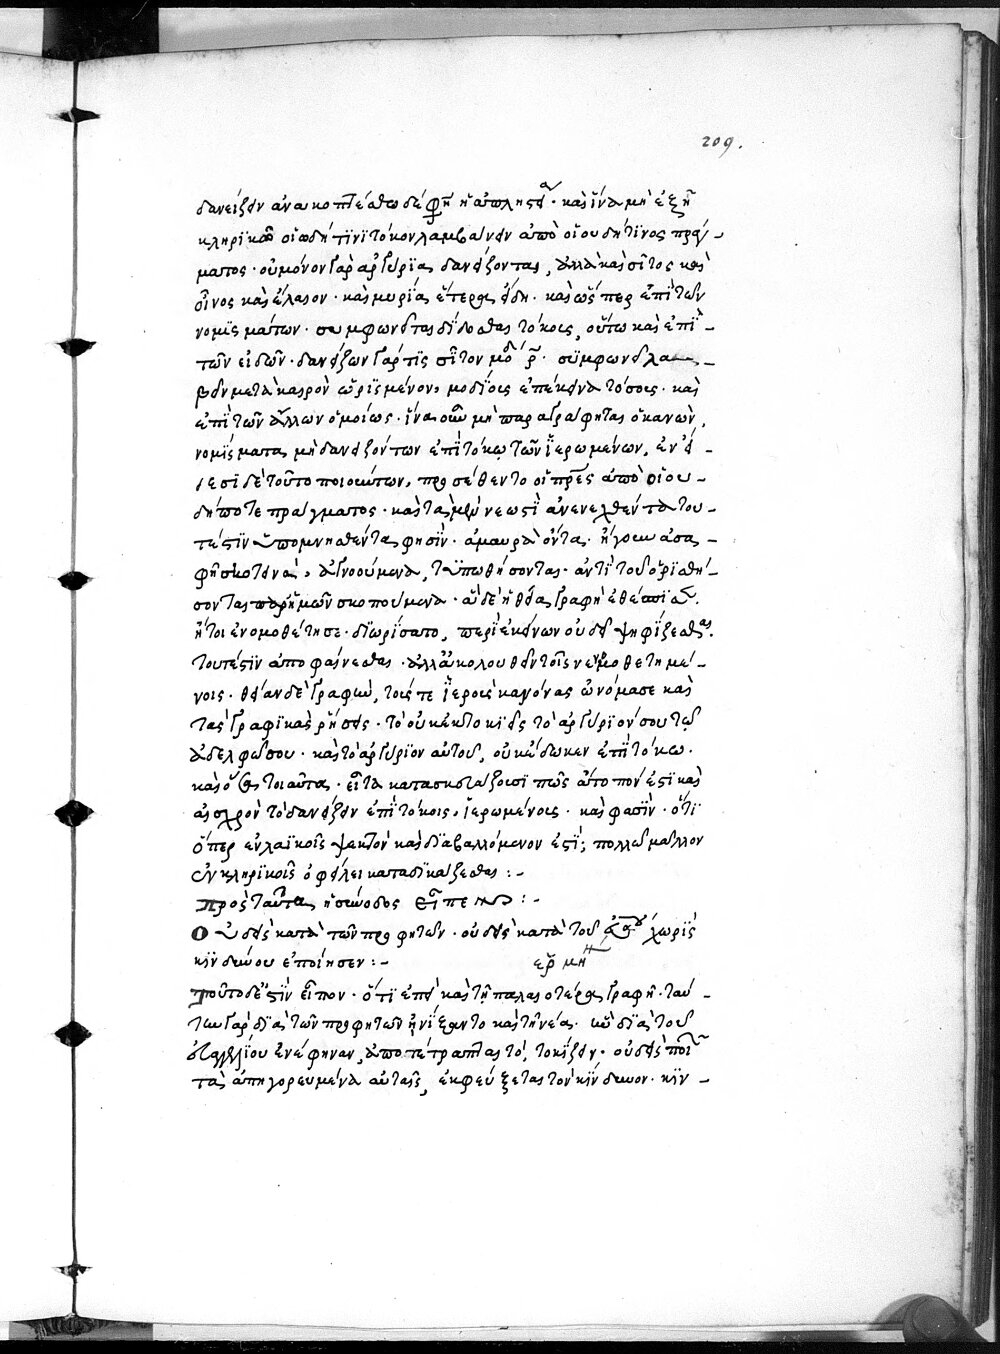 209.
δανείζειν ἀνακοπτέσθω δέ φη ἡ ἀπληστία· καὶ ἵνα μὴ ἐξῇ
κληρικῶ οἱωδήτινι τόκον λαμβάνειν ἀπὸ οἱουδήτινος πράγ-
ματος· οὐ μόνον γὰρ ἀργύρια δανείζονται, ἀλλὰ καὶ σῖτος καὶ
οἶνος καὶ ἔλαιον· καὶ μυρία ἕτερα εἴδη· καὶ ὥσπερ ἐπὶ τῶν
νομισμάτων· συμφωνεῖται δίδοσθαι τόκοις, οὕτω καὶ ἐπὶ
τῶν εἰδῶν· δανείζων γάρ τις σῖτον μοδ ρ· συμφωνεῖ λαμ-
βάνειν μετὰ καιρὸν ὡρισμένον, μοδίοις ἐπέκεινα τόσοις· καὶ
ἐπὶ τῶν ἄλλων ὁμοίως· ἵνα οὖν μὴ παραγράφηται ὁ κανὼν,
νομίσματα μὴ δανειζόντων ἐπὶ τόκω τῶν ἱερωμένων, ἐν εἴ-
δεσι δὲ τοῦτο ποιούντων, προσέθεντο οἱ πρες ἀπὸ οἱου-
δήποτε πράγματος· καὶ τὰ μὲν νεωστὶ ἀνενεχθέντα του-
τέστιν ὑπομνησθέντα φησὶν· ἀμαυρὰ ὄντα· ἤγουν ἀσα-
φῆ σκοτεινὰ, ἀγνοούμενα, τυπωθήσονται· ἀντὶ τοῦ ὁρισθή-
σονται παρ' ἡμῶν σκοπούμενα· ἃ δὲ ἡ θεία γραφὴ ἐθέσπισε.
ἤτοι ἐνομοθέτησε· διωρίσατο, περὶ ἐκείνων οὐ δεῖ ψηφίζεσθαι.
τουτέστιν ἀποφαίνεσθαι· ἀλλ' ἀκολουθεῖν τοῖς νενομοθετημέ-
νοις· θείαν δὲ γραφὴν, τούς τε ἱεροὺς κανόνας ὠνόμασε καὶ
τὰς γραφικὰς ρήσεις· τὸ οὐκ ἐκτοκιεῖς τὸ ἀργύριόν σου τῶ
ἀδελφῶ σου· καὶ τὸ ἀργύριον αὐτοῦ, οὐκ ἔδωκεν ἐπὶ τόκω·
καὶ ὅσα τοιαῦτα· εἶτα κατασκευάζουσι πῶς ἄτοπόν ἐστι καὶ
αἰσχρὸν τὸ δανείζειν ἐπὶ τόκοις, ἱερωμένοις· καὶ φασὶν· ὅτι
ὅπερ ἐν λαϊκοῖς ψεκτὸν καὶ διαβαλλόμενον ἐστὶ; πολλῶ μᾶλλον
ἐν κληρικοῖς ὀφείλει καταδικάζεσθαι :-
Πρὸς ταῦτα ἡ σύνοδος εἶπεν :-
Οὐδεὶς κατὰ τῶν προφητῶν· οὐδεὶς κατὰ τοῦ εὐαγγ χωρὶς
κινδύνου ἐποίησεν :- ἑρμη
Τοῦτο δὲ ἐστὶν εἶπον· ὅτι ἐπεὶ καὶ τῇ παλαιοτέρα γραφῆ· ταύ-
την γὰρ διὰ τῶν προφητῶν ἠνίξαντο καὶ τῇ νέα· ἣν διὰ τοῦ
εὐαγγελίου ἐνέφηναν, ἀποτέτραπται τὸ, τοκίζειν· οὐδεὶς ποιῶν
τὰ ἀπηγορευμένα αὐταῖς, ἐκφεύξεται τὸν κίνδυνον· κίν-